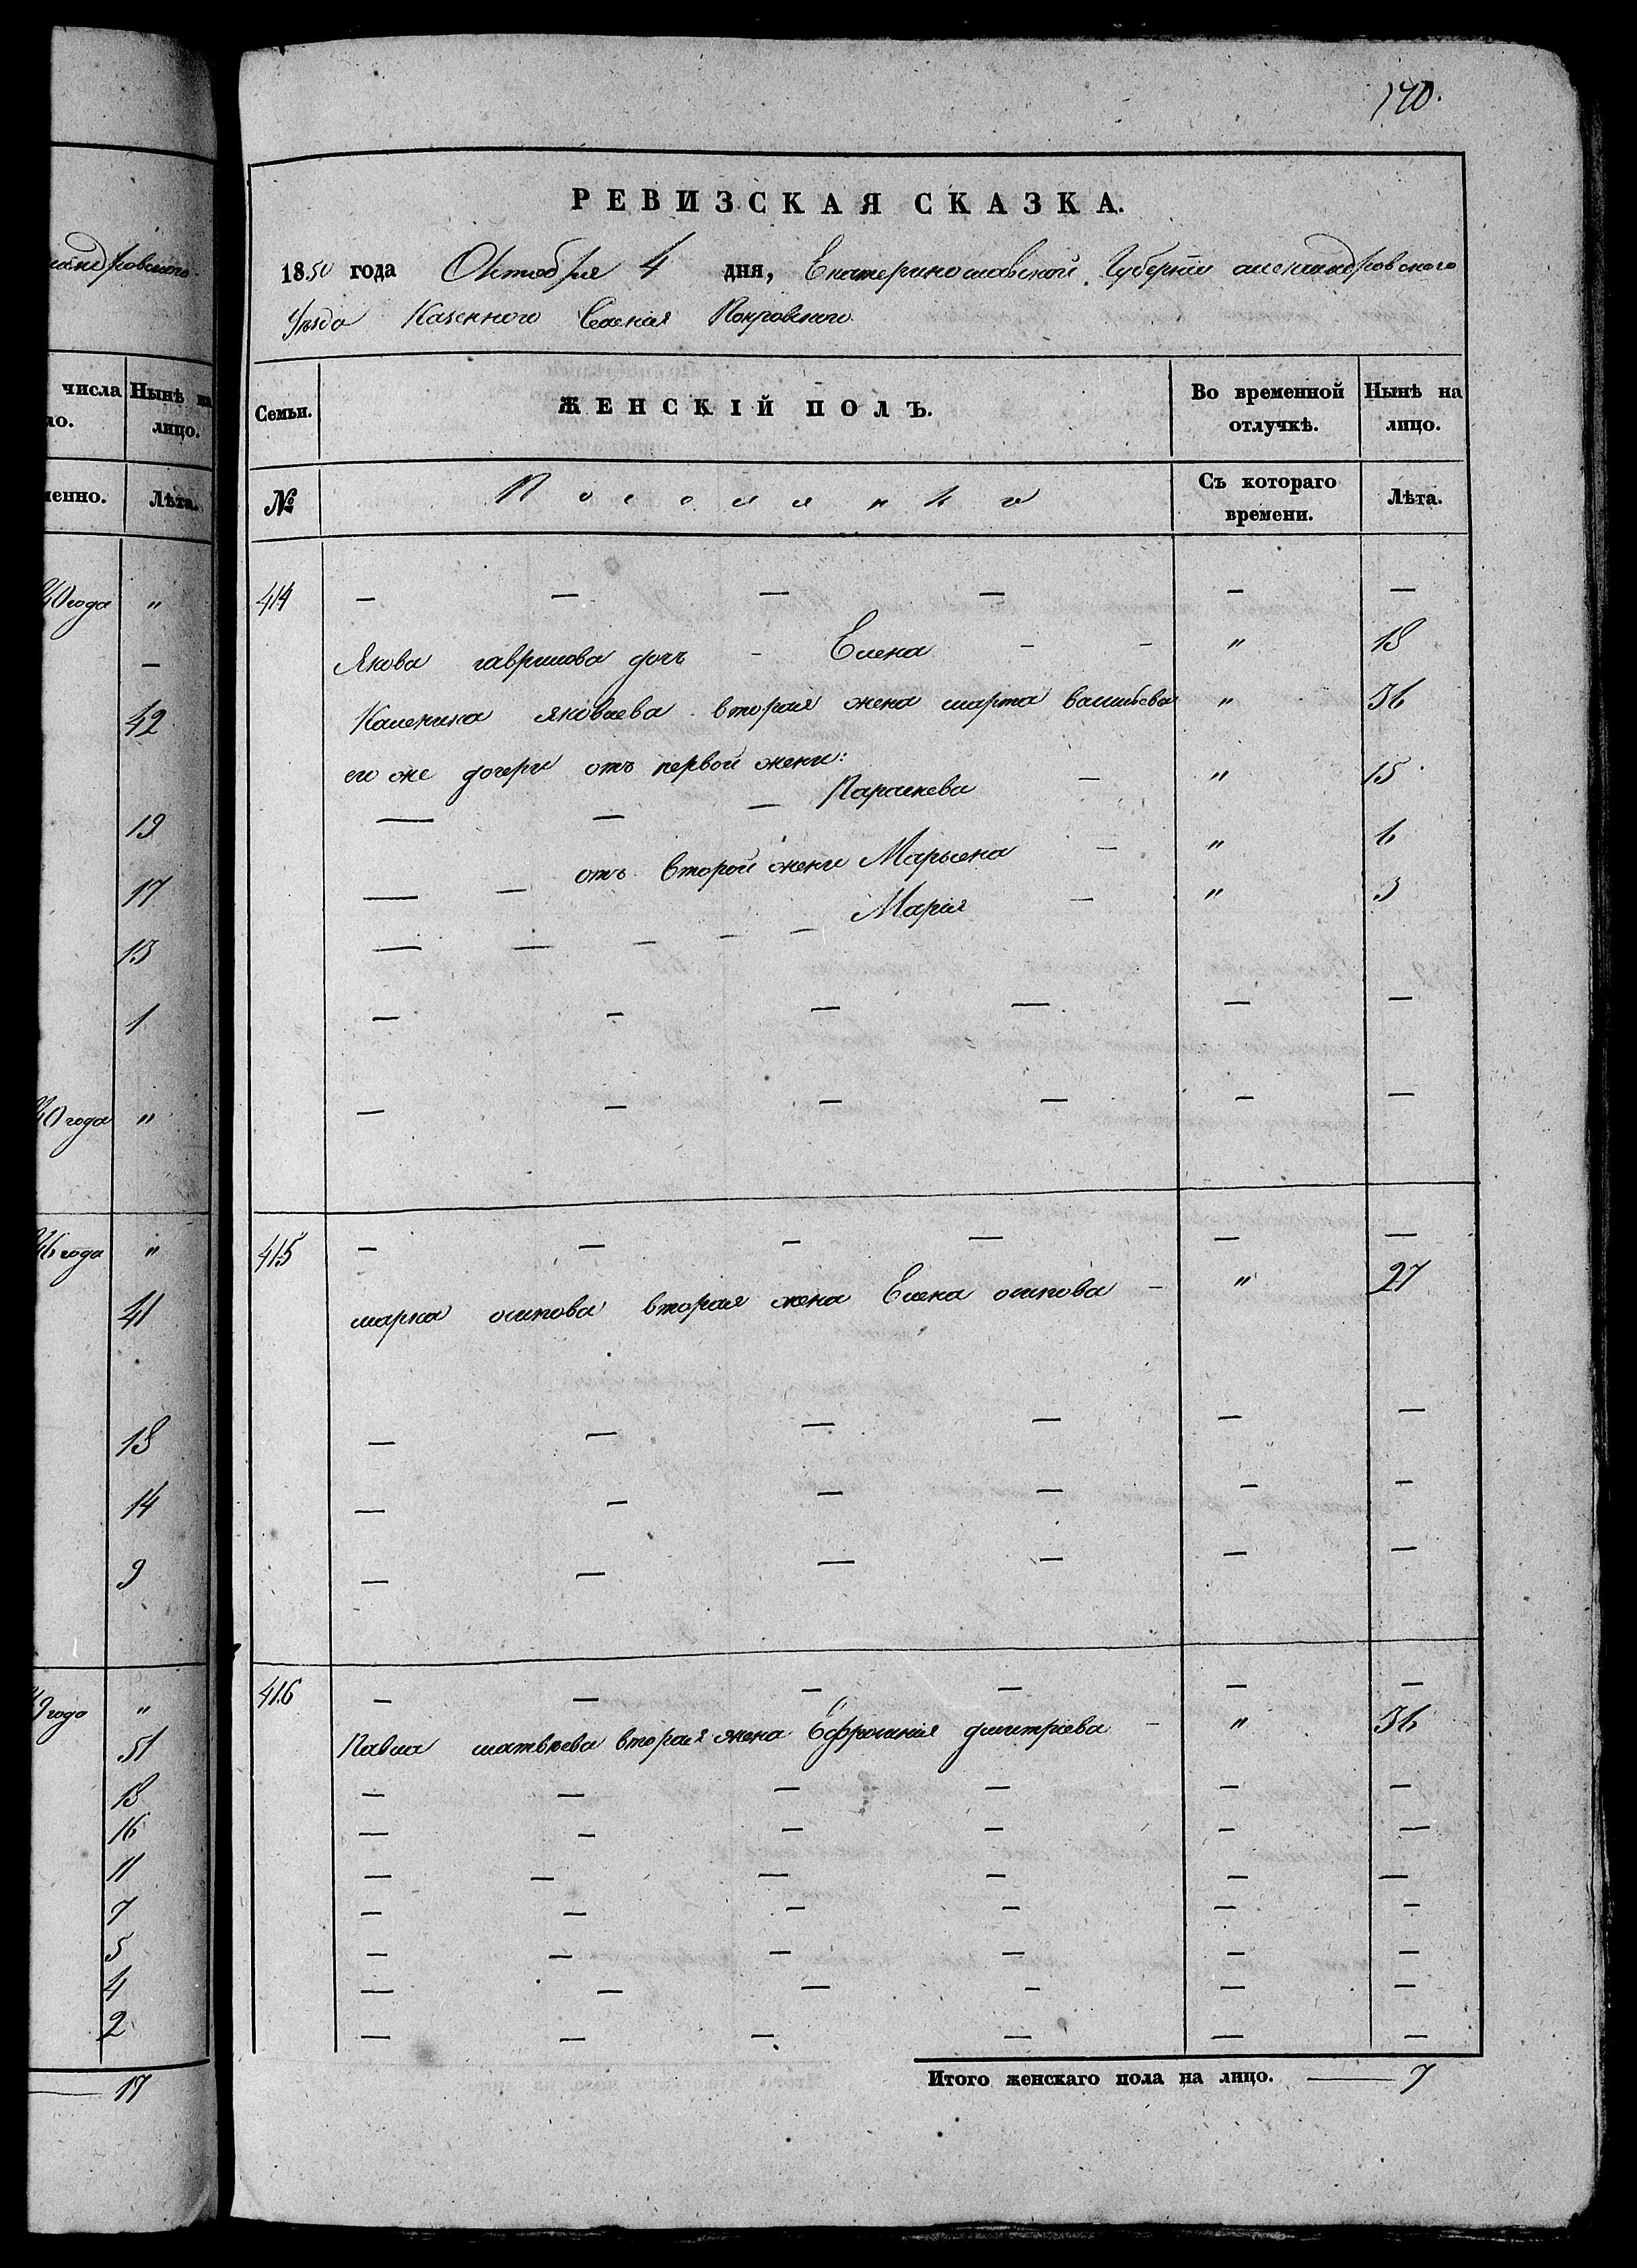 170.
РЕВИЗСКАЯ СКАЗКА.
1850 года Октября 4 дня, Екатеринославской Губернии александровского
Уѣзда Казенного Селения Покровского
Семьи. ЖЕНСКІЙ ПОЛЪ. Во временной отлучкѣ. Нынѣ на лицо.
№ Поселянка Съ котораго времени. Лѣта.
414 — — — — — —
Якова гаврилова дочь - Елена - - " 18
Каленика яковлева вторая жена марта васильева " 36
его же дочери отъ первой жени:
— — — Параскева — " 15
— — отъ второй жени Марьяна — " 6
— — — — — Мария — " 3
— — — — — —
— — — — — —
415 — — — — — —
марка осипова вторая жена Елена осипова — " 27
— — — — — —
— — — — — —
— — — — — —
416 — — — — — —
Павла матвѣева вторая жена Ефросиния дмитріева — " 36
— — — — — —
— — — — — —
— — — — — —
— — — — — —
— — — — — —
— — — — — —
— — — — — —
Итого женскаго пола на лицо. — 7
числа Нынѣ на
ло. лицо.
менно. Лѣта.
40 года "
—
42
19
17
13
1
40 года "
46 года "
41
18
14
9
49 года "
51
18
16
11
7
5
4
2
— 17